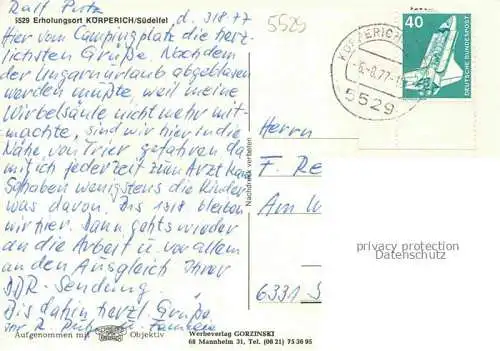 Ralf Putz
5529 Erholungsort KÖRPERICH/Südeifel
d. 3.8.77
5529
Hier vom Campingplatz die herz-
lichsten Grüße. Nachdem
der Ungarnurlaub abgeblasen
werden mußte, weil meine
Wirbelsäule nicht mehr mit-
machte, sind wir hier in die
Nähe von Trier gefahren da
mich jederzeit zum Arzt kann
So haben wenigstens die Kinder
was davon. Bis 18.8 bleiben
wir hier. Dann gehts wieder
an die Arbeit u. vor allem
an den Ausgleich Ihrer
DDR-Sendung.
Bis dahin herzl. Grüße
Ihr R. u. Familie
Aufgenommen mit Objektiv
Nachdruck verboten
Werbeverlag GORZINSKI
68 Mannheim 31, Tel. (06 21) 75 36 95
KÖRPERICH
5529
40
DEUTSCHE BUNDESPOST
Herrn
F. Re
Am W
6331 S
privacy protection
Datenschutz